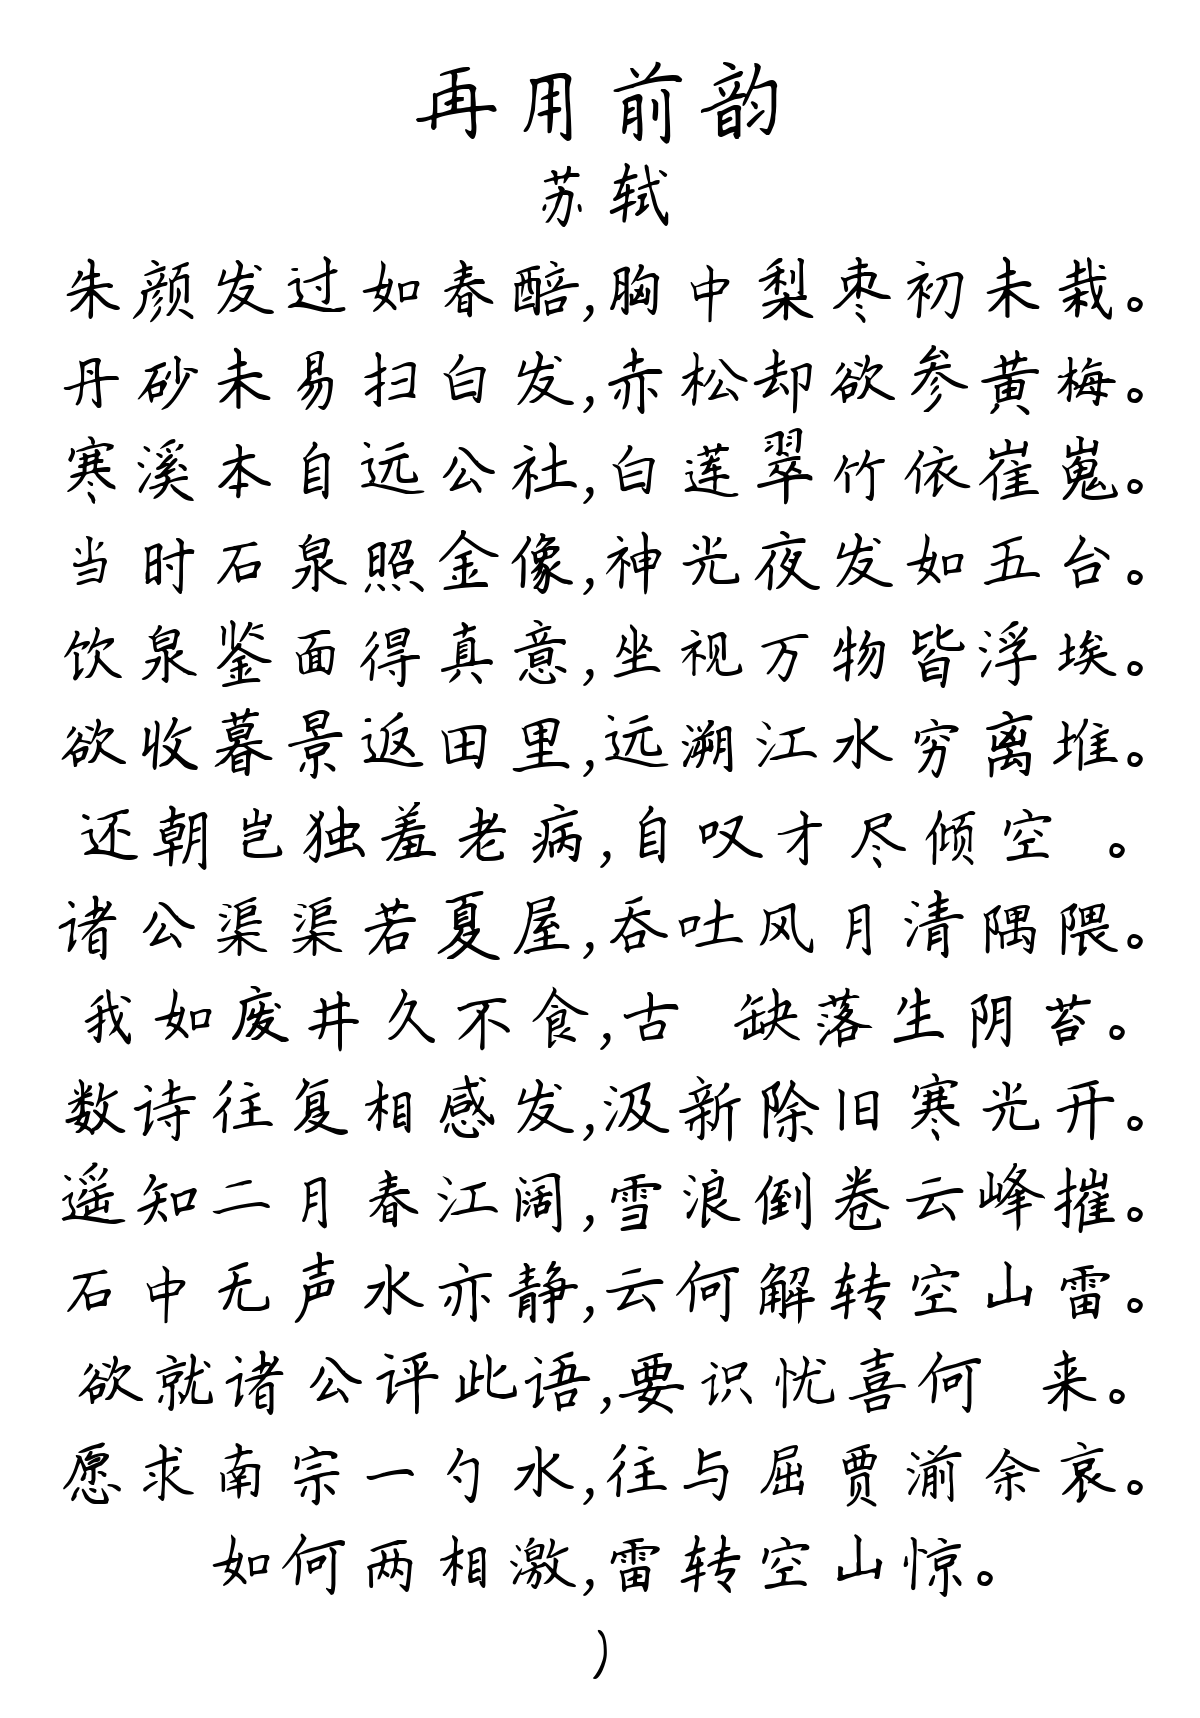 再用前韵
苏轼
朱颜发过如春醅,胸中梨枣初未栽。
丹砂未易扫白发,赤松却欲参黄梅。
寒溪本自远公社,白莲翠竹依崔嵬。
当时石泉照金像,神光夜发如五台。
饮泉鉴面得真意,坐视万物皆浮埃。
欲收暮景返田里,远溯江水穷离堆。
还朝岂独羞老病,自叹才尽倾空 。
诸公渠渠若夏屋,吞吐风月清隅隈。
我如废井久不食,古 缺落生阴苔。
数诗往复相感发,汲新除旧寒光开。
遥知二月春江阔,雪浪倒卷云峰摧。
石中无声水亦静,云何解转空山雷。
欲就诸公评此语,要识忧喜何 来。
愿求南宗一勺水,往与屈贾湔余哀。
如何两相激,雷转空山惊。
)